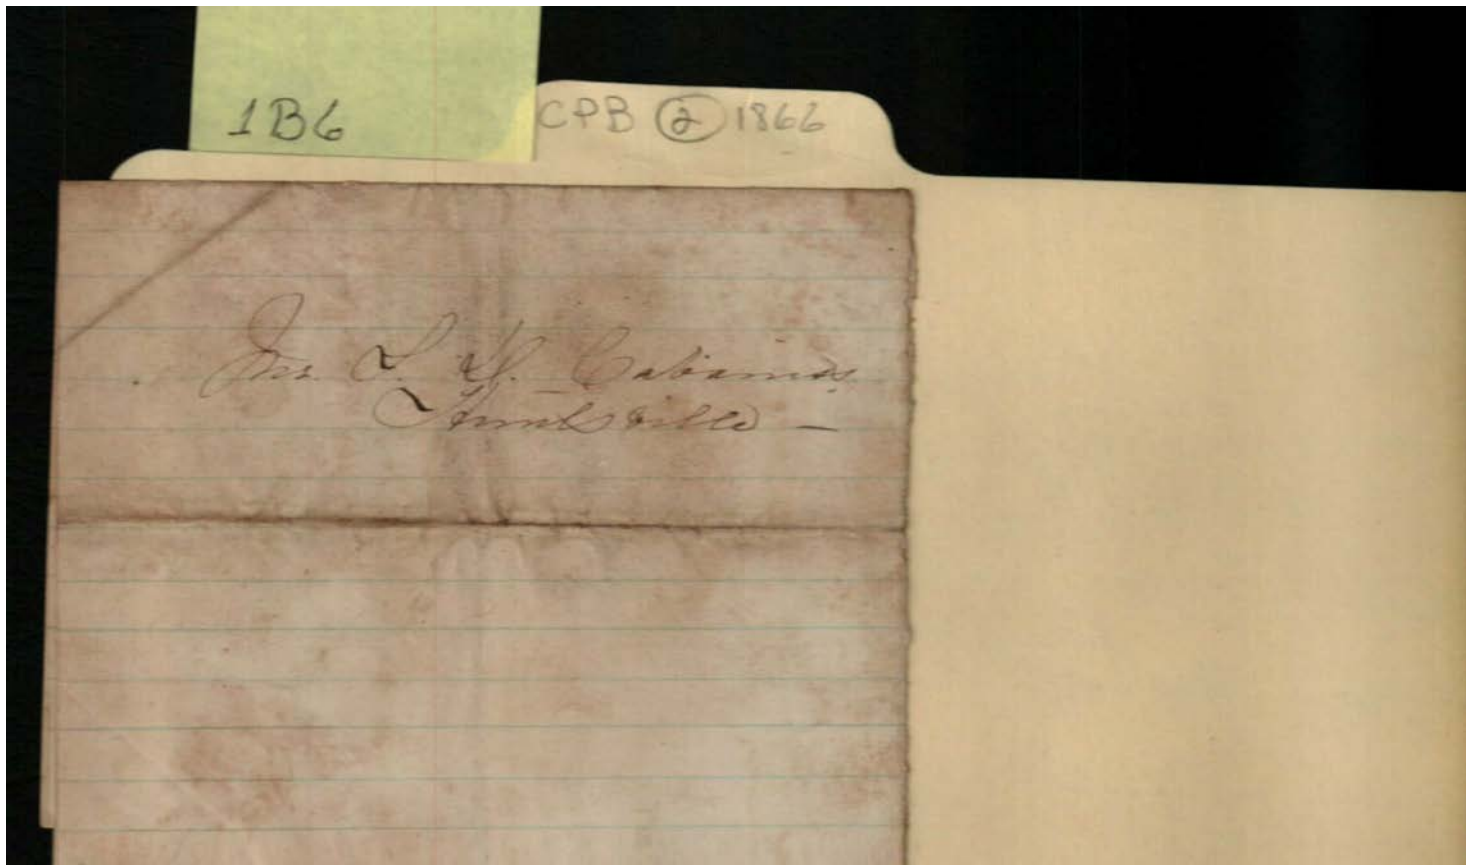 1B6
CPB 2 1866
Mrs. S. D. Cabaniss
Huntsville –